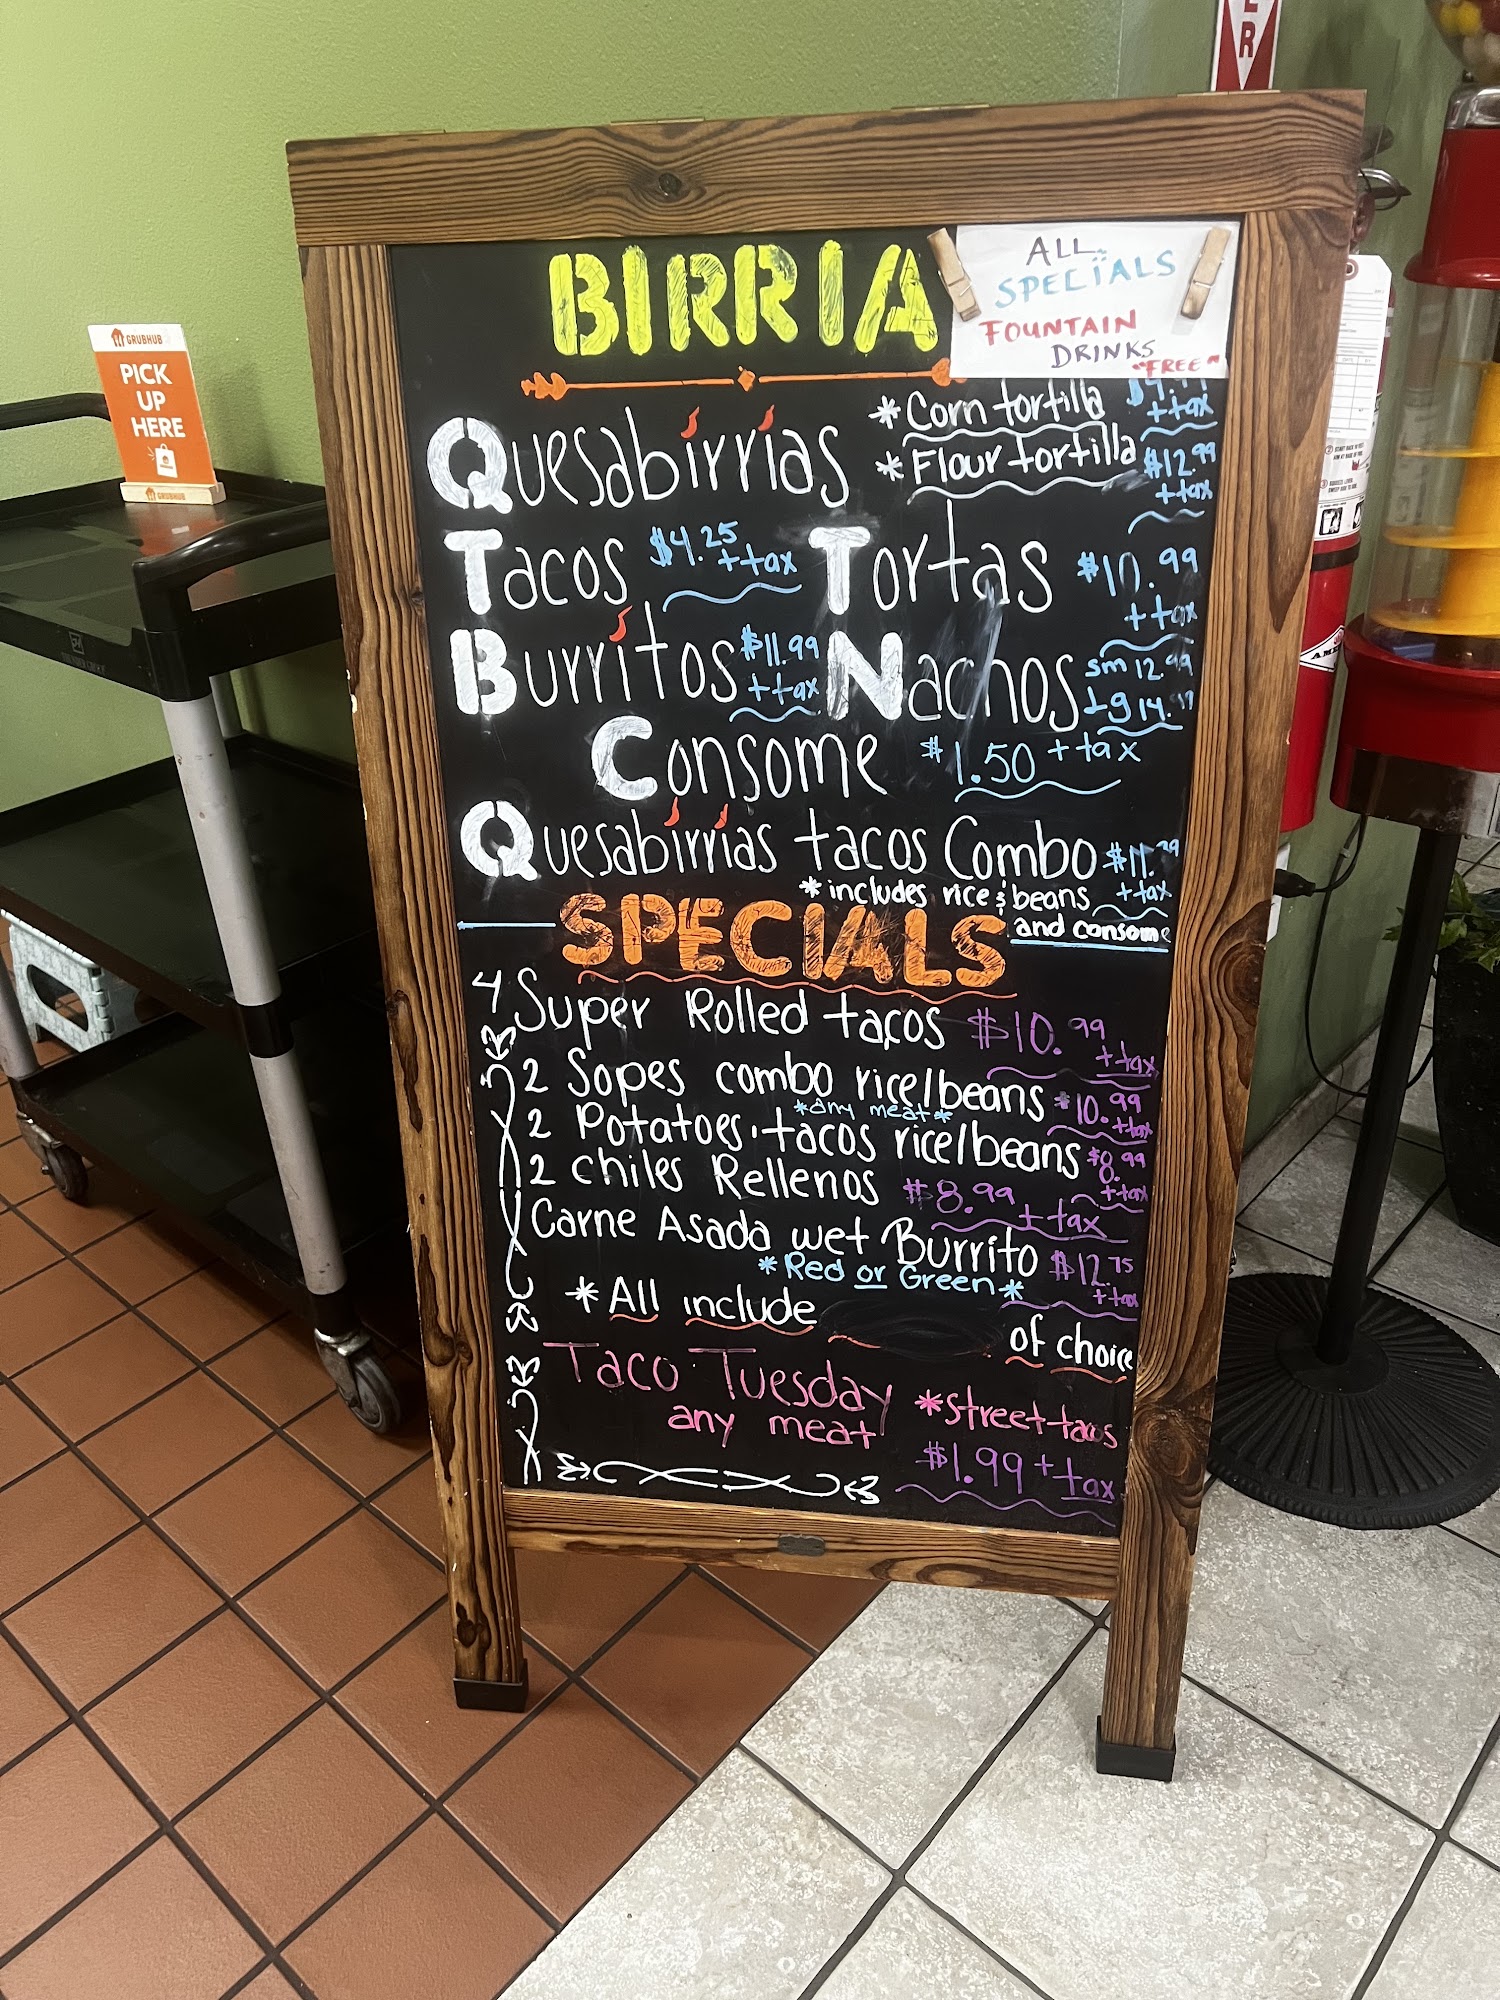 ER
GRUBHUB
PICK
UP
HERE
GRUBHUB
BIRRIA
ALL
SPECIALS
FOUNTAIN
DRINKS
"FREE"
Quesabirrias
* Corn tortilla + tax
* Flour tortilla $12.99 + tax
Tacos $4.25 + tax Tortas $10.99 + tax
Burritos $11.99 + tax Nachos sm 12.99 lg 14.99
Consome $1.50 + tax
Quesabirrias tacos Combo $11.99 + tax
* includes rice & beans
and consome
SPECIALS
4 Super Rolled tacos $10.99 + tax
2 Sopes combo rice/beans $10.99 + tax
*any meat*
2 Potatoes tacos rice/beans $8.99 + tax
2 chiles Rellenos $8.99 + tax
Carne Asada wet Burrito $12.75 + tax
*Red or Green*
* All include of choice
Taco Tuesday *street tacos
any meat $1.99 + tax